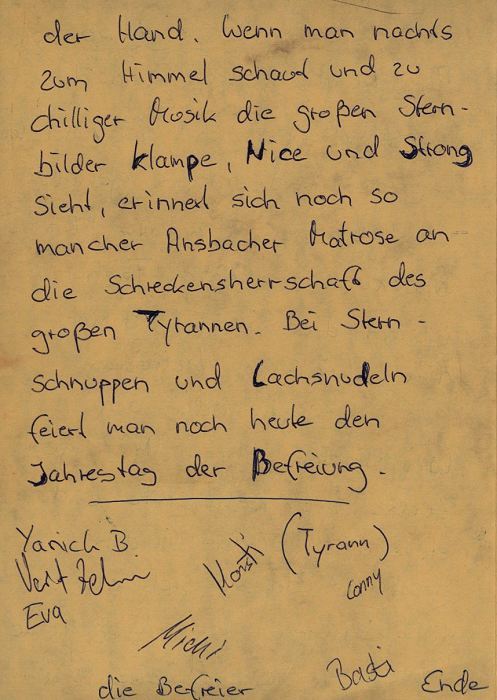 der Hand. Wenn man nachts
zum Himmel schaut und zu
chilliger Musik die großen Stern-
bilder Klampe, Nice und Strong
sieht, erinnert sich noch so
mancher Ansbacher Matrose an
die Schreckensherrschaft des
großen Tyrannen. Bei Stern-
schnuppen und Lachsnudeln
feiert man noch heute den
Jahrestag der Befreiung.
Yanick B.
Eva
(Tyrann)
Conny
Michi
Basti
die Befreier
Ende